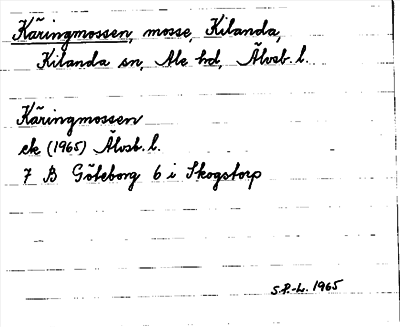 Käringmossen, mosse, Kilanda,
Kilanda sn, Ale hd, Älvsb. l.
Käringmossen
ek (1965) Älvsb. l.
7 B Göteborg 6 i Skogstorp
S.P.-L. 1965